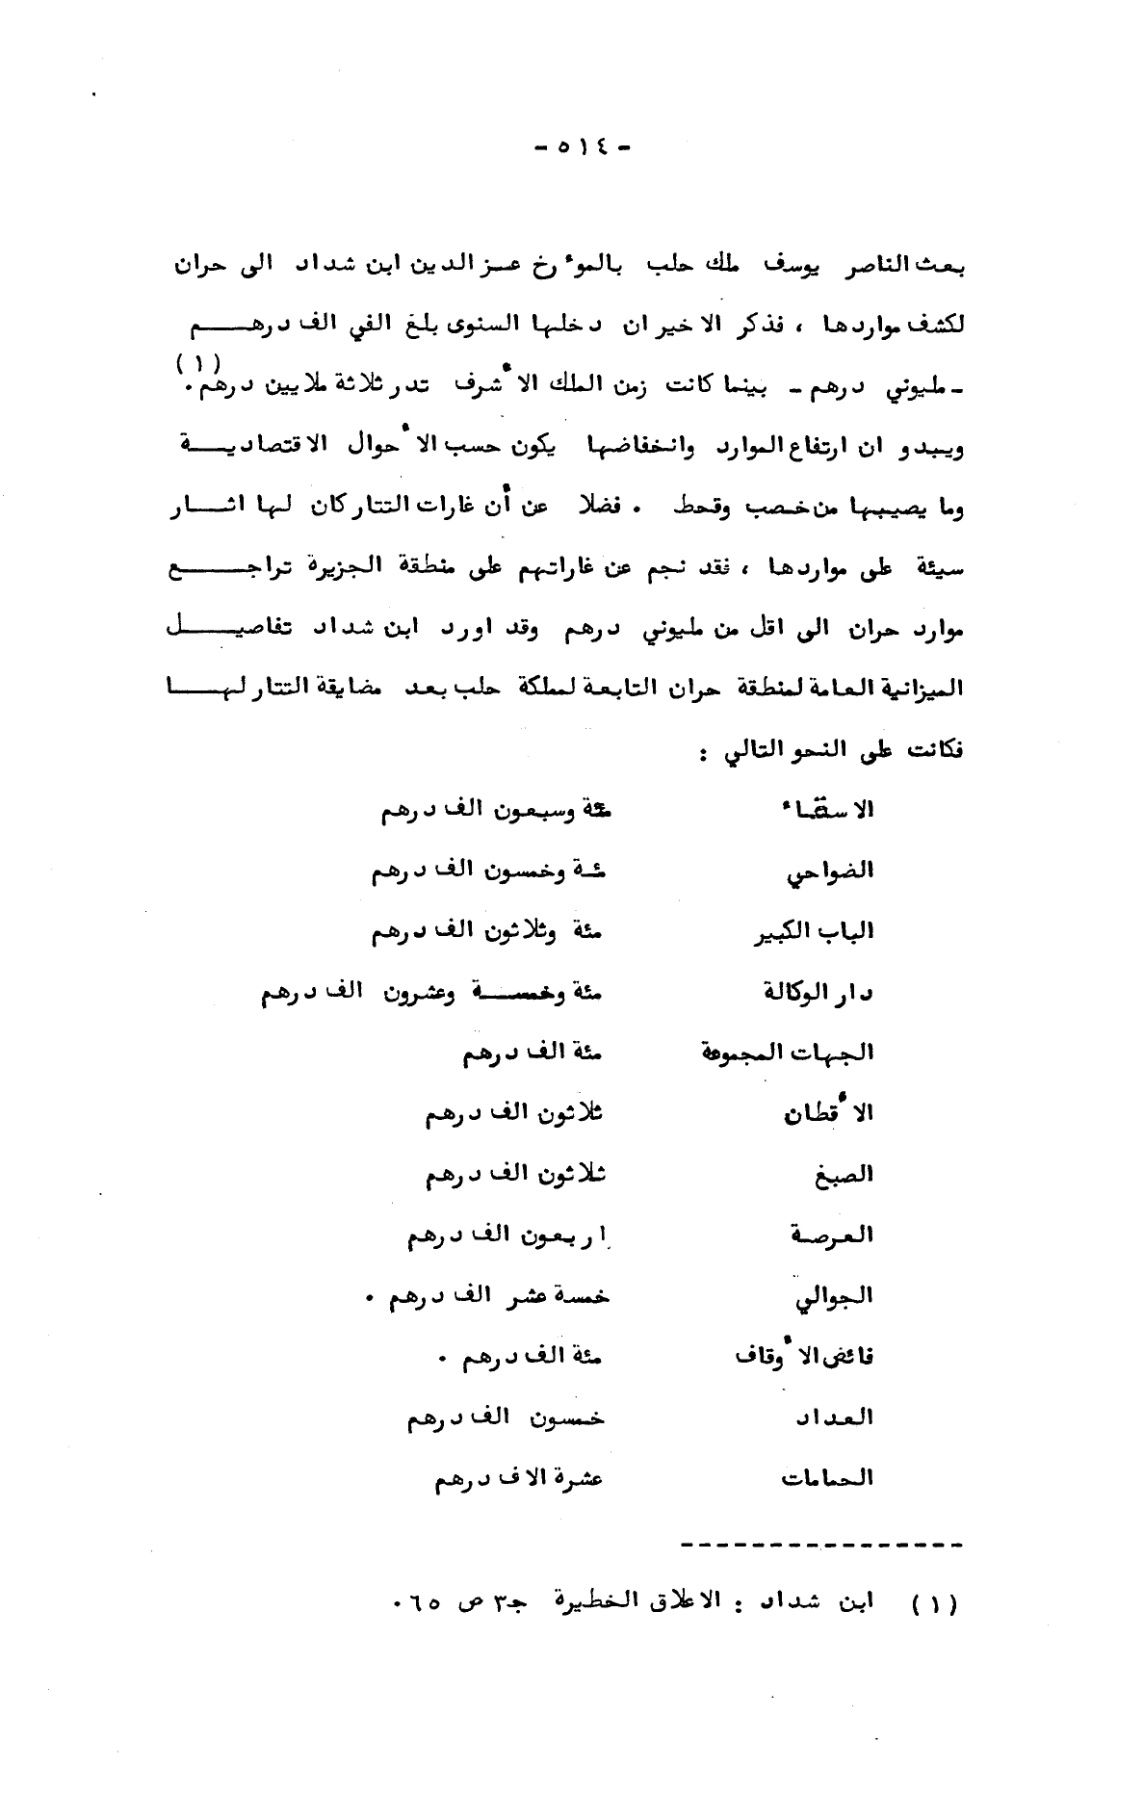 - ٥١٤ -
بعث الناصر يوسف ملك حلب بالموءرخ عز الدين ابن شداد الى حران
لكشف مواردها ، فذكر الاخير ان دخلها السنوى بلغ الفي الف درهـــم
ـ مليوني درهم ـ بينما كانت زمن الملك الأشرف تدر ثلاثة ملايين درهم . (١)
ويبدو ان ارتفاع الموارد وانخفاضها يكون حسب الأحوال الاقتصاديـــة
وما يصيبها من خصب وقحط . فضلا عن أن غارات التتار كان لها اثـــار
سيئة على مواردها ، فقد نجم عن غاراتهم على منطقة الجزيرة تراجـــع
موارد حران الى اقل من مليوني درهم وقد اورد ابن شداد تفاصيـــل
الميزانية العامة لمنطقة حران التابعة لمملكة حلب بعد مضايقة التتار لهـــا
فكانت على النحو التالي :
الاسقاء مئة وسبعون الف درهم
الضواحي مئة وخمسون الف درهم
الباب الكبير مئة وثلاثون الف درهم
دار الوكالة مئة وخمســة وعشرون الف درهم
الجهات المجموعة مئة الف درهم
الأقطان ثلاثون الف درهم
الصبغ ثلاثون الف درهم
العرصة اربعون الف درهم
الجوالي خمسة عشر الف درهم .
فائض الأوقاف مئة الف درهم .
العداد خمسون الف درهم
الحمامات عشرة الاف درهم
(١) ابن شداد : الاعلاق الخطيرة جـ٣ ص ٦٥ .